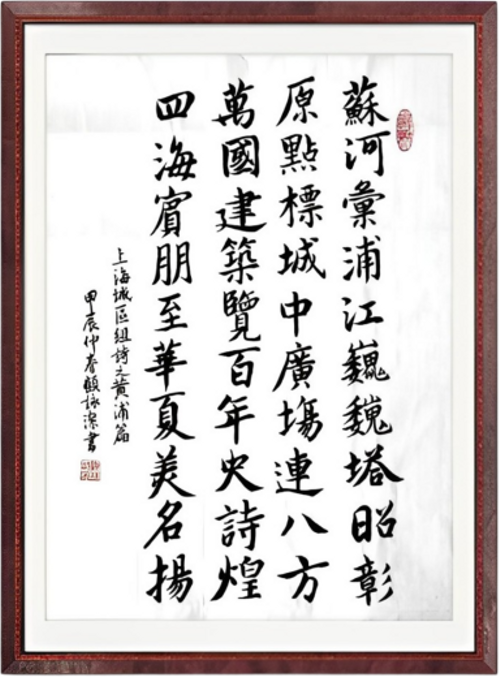 蘇河彙浦江巍巍塔昭彰
原點標城中廣塲連八方
萬國建築覽百年史詩煌
四海賓朋至華夏美名揚
上海城區組詩之黄浦篇
甲辰仲春顧詠深書